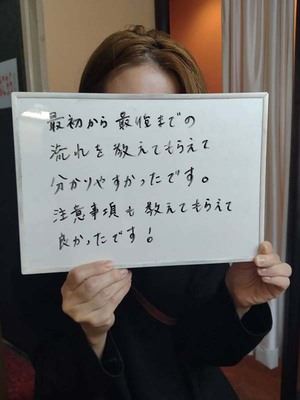 最初から最後までの
流れを教えてもらえて
分かりやすかったです。
注意事項も教えてもらえて
良かったです!